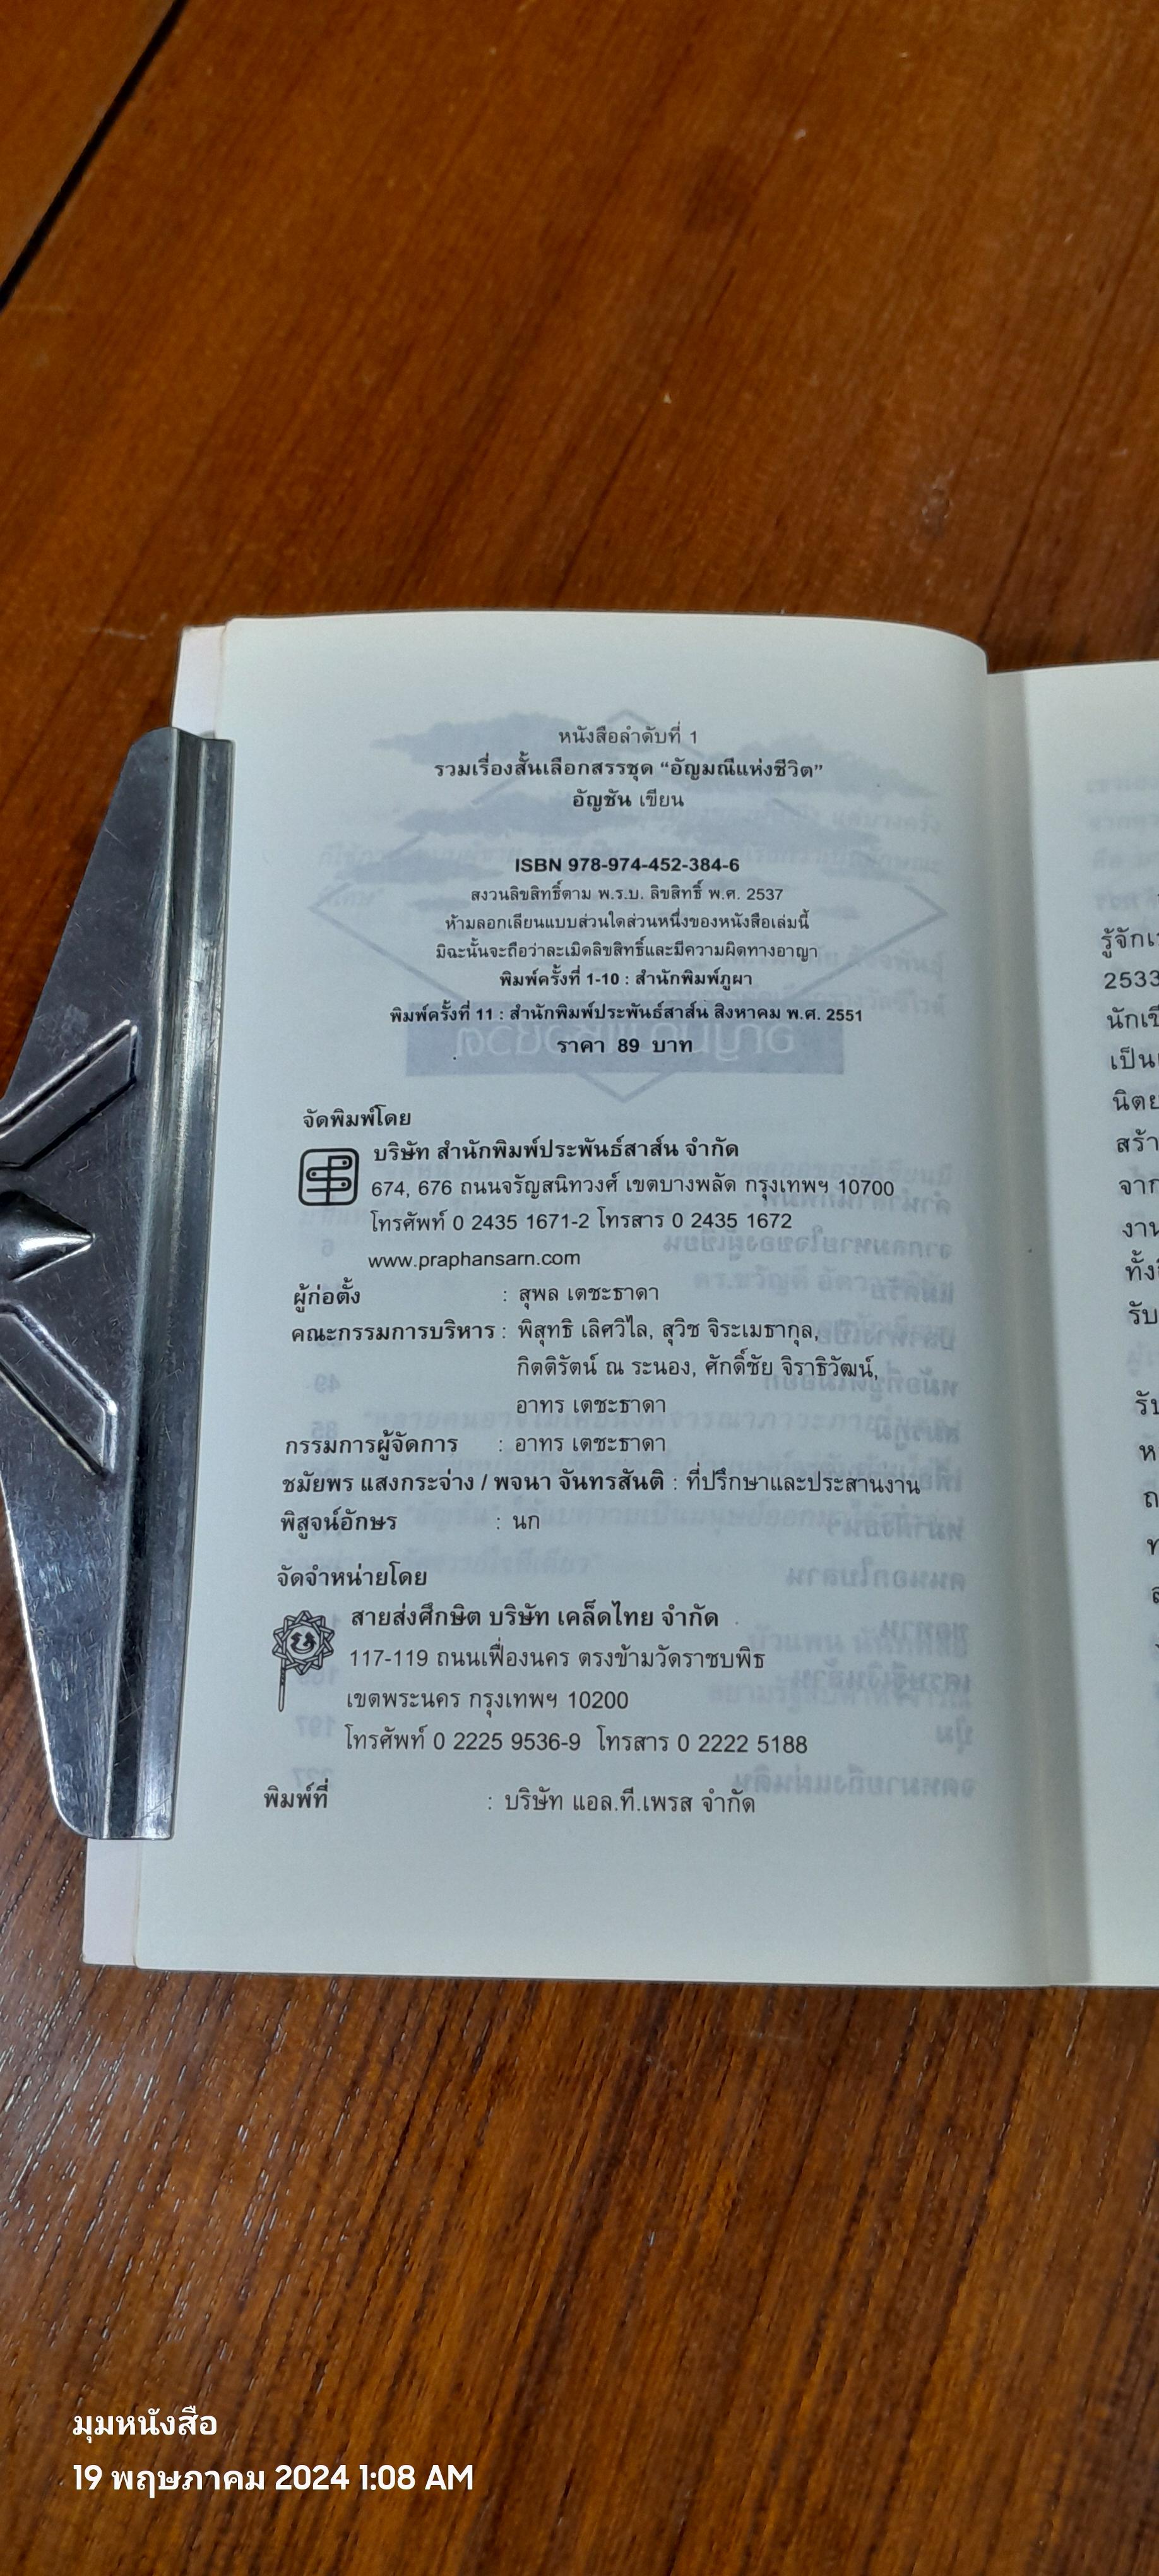 หนังสือลำดับที่ 1
รวมเรื่องสั้นเลือกสรรชุด “อัญมณีแห่งชีวิต”
อัญชัน เขียน
ISBN 978-974-452-384-6
สงวนลิขสิทธิ์ตาม พ.ร.บ. ลิขสิทธิ์ พ.ศ. 2537
ห้ามลอกเลียนแบบส่วนใดส่วนหนึ่งของหนังสือเล่มนี้
มิฉะนั้นจะถือว่าละเมิดลิขสิทธิ์และมีความผิดทางอาญา
พิมพ์ครั้งที่ 1-10 : สำนักพิมพ์ภูผา
พิมพ์ครั้งที่ 11 : สำนักพิมพ์ประพันธ์สาส์น สิงหาคม พ.ศ. 2551
ราคา 89 บาท
จัดพิมพ์โดย
บริษัท สำนักพิมพ์ประพันธ์สาส์น จำกัด
674, 676 ถนนจรัญสนิทวงศ์ เขตบางพลัด กรุงเทพฯ 10700
โทรศัพท์ 0 2435 1671-2 โทรสาร 0 2435 1672
www.praphansarn.com
ผู้ก่อตั้ง : สุพล เตชะธาดา
คณะกรรมการบริหาร : พิสุทธิ เลิศวิไล, สุวิช จิระเมธากุล,
กิตติรัตน์ ณ ระนอง, ศักดิ์ชัย จิราธิวัฒน์,
อาทร เตชะธาดา
กรรมการผู้จัดการ : อาทร เตชะธาดา
ชมัยพร แสงกระจ่าง / พจนา จันทรสันติ : ที่ปรึกษาและประสานงาน
พิสูจน์อักษร : นก
จัดจำหน่ายโดย
สายส่งศึกษิต บริษัท เคล็ดไทย จำกัด
117-119 ถนนเฟื่องนคร ตรงข้ามวัดราชบพิธ
เขตพระนคร กรุงเทพฯ 10200
โทรศัพท์ 0 2225 9536-9 โทรสาร 0 2222 5188
พิมพ์ที่ : บริษัท แอล.ที.เพรส จำกัด
2533
มุมหนังสือ
19 พฤษภาคม 2024 1:08 AM